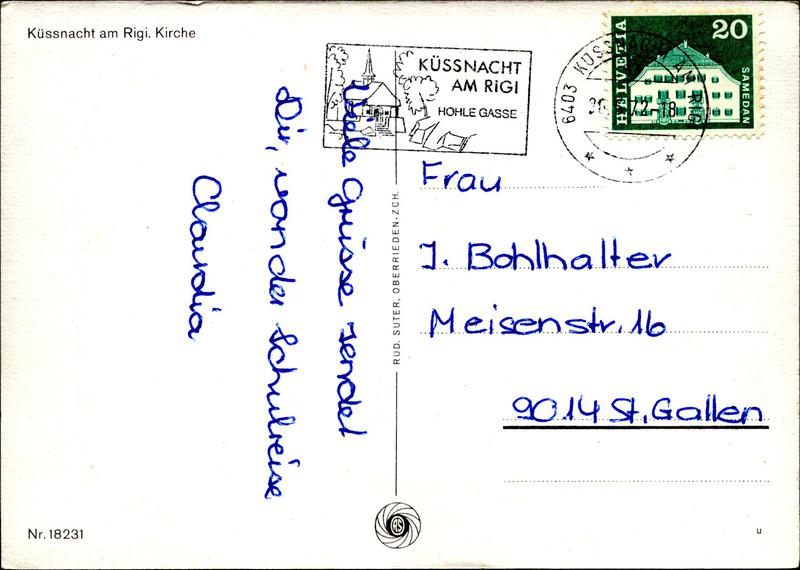 Küssnacht am Rigi. Kirche
KÜSSNACHT
AM RIGI
HOHLE GASSE
6403 KÜSSNACHT AM RIGI
72-18
HELVETIA
20
SAMEDAN
Viele Grüsse sendet
Dir, von der Schulreise
Claudia
Frau
J. Bohlhalter
Meisenstr. 16
9014 St. Gallen
RUD. SUTER, OBERRIEDEN-ZCH.
RS
Nr. 18231
u